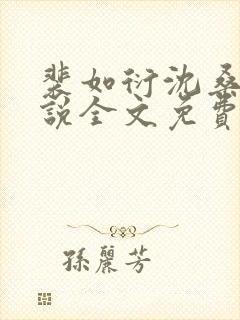 裴如衍沈桑
說全文免費
孫麗芳